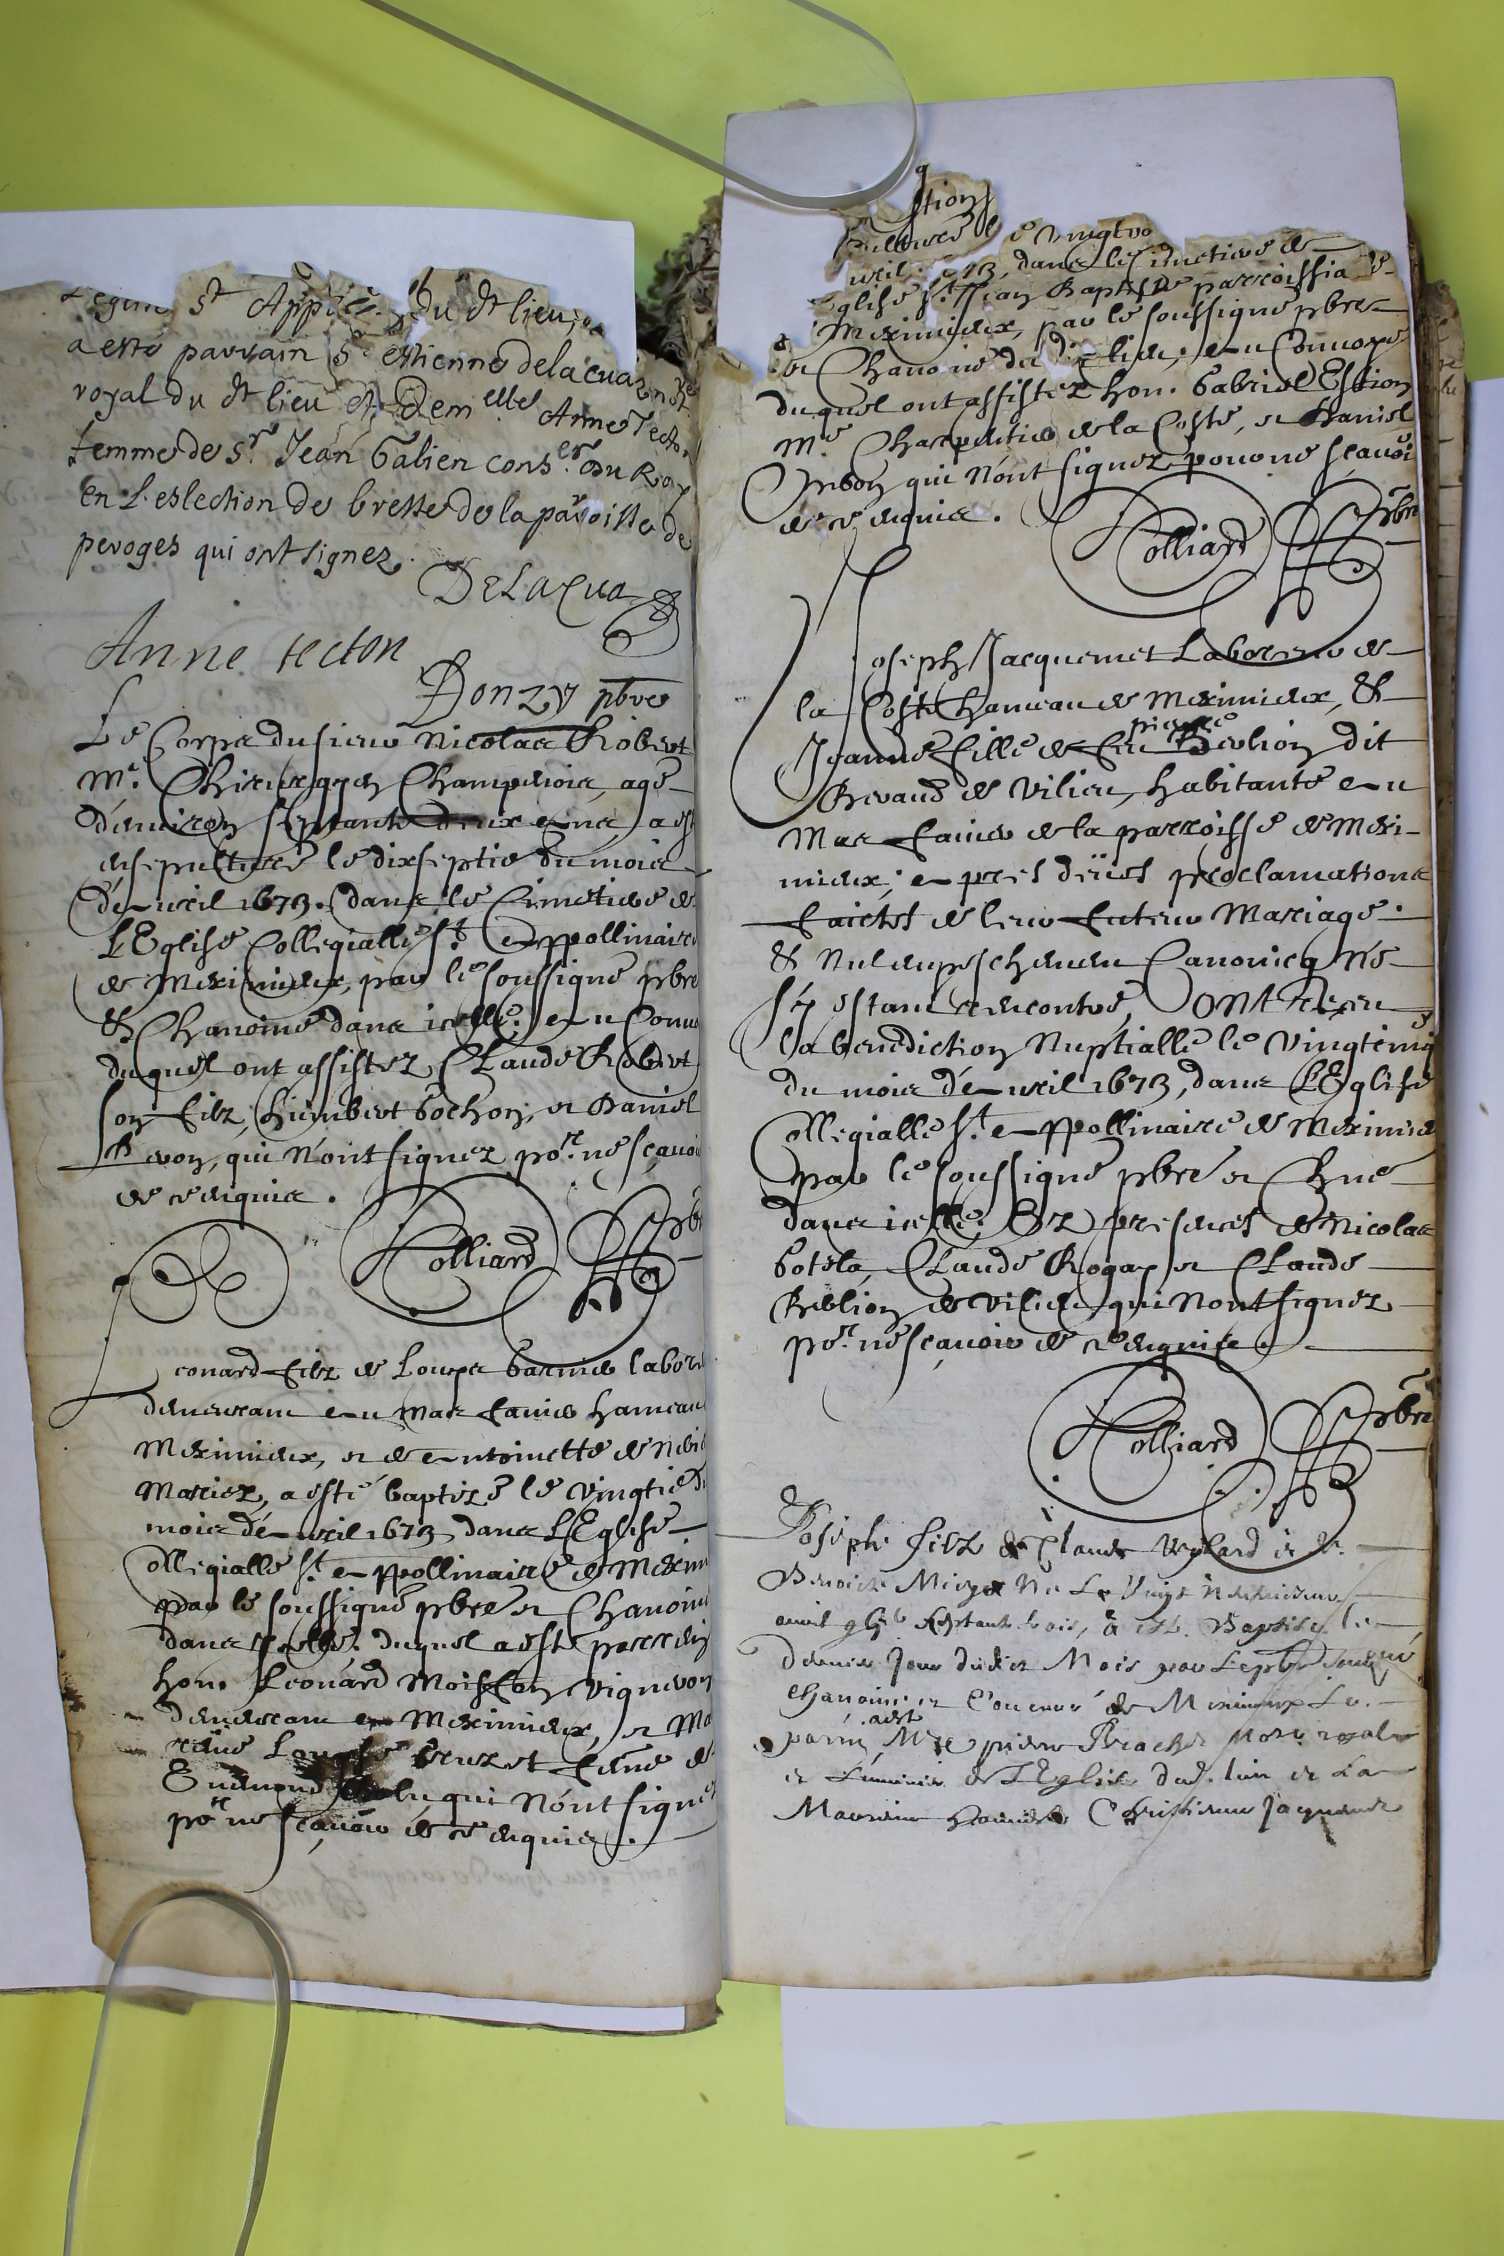 St Appo du dt lieu
a esté parrain Sr estienne delacua
royal du dt lieu et Demelle Anne Tecton
femme de Sr. Jean Gabien conser. du Roy
En L'eslection de bresse de la parroisse de
peroges qui ont signez.
Delacua
Anne tecton
Donzy pbre
Le Corps du sieur Nicolas Robert
Me. Chirurgien Champenois, agé
d'environ septante deux ans, a esté
ensepulturé le dixseptie du mois
d'Avril 1673. dans le Cimetiere de
L'Eglise Collegialle St. Appollinaire
de Meximieux, par le soussigné pbre
& Chanoine dans icelle. Au Convoy
duquel ont assistez Claude Robert
son filz, Humbert bochon, et Daniel
qui n'ont signez por. ne sçavoir
de ce enquis.
Colliard pbre
Leonard filz de Loupe barnie labore
demeurant au Mas famie hameau
Meximieux, et de Antoinette de
Mariez, a esté baptizé le vingtie du
mois d'Avril 1673 dans L'Eglise
Collegialle St. Appollinaire de Mexim
par le soussigné pbre et Chanoine
dans icelle. duquel a esté parrein
hon. Leonard Moisson vigneron
demeurant a Meximieux, et Ma
reine feme de
qui n'ont signez
por ne sçavoir de ce enquis.
vingtro
vril 1673, dans le Cimetiere de
glise St. Jean Baptiste parroissia
Meximieux, par le soussigné pbre
et Chanoine du dt lieu, au Convoy
duquel ont assistez hon. Gabriel Estion
Me. Charpentier de la Coste, et Daniel
qui n'ont signez pour ne sçavoir
de ce enquis.
Colliard pbre
Joseph Jacquemet Laboreur de
la Coste hameau de Meximieux, &
Jeanne fille de feu pierre Berlion dit
Revaud de Vilieu, habitante au
Mas famie de la parroisse de Mexi-
mieux; apres deües proclamations
faictes de leur futeur Mariage.
& Nul empeschement Canonicq né
s'y estant rencontré, Ont receu
la benediction Nuptialle le vingtcinq
du mois d'Avril 1673, dans L'Eglise
Collegialle St. Appollinaire de Meximieux
par le soussigné pbre et Chne
dans icelle. Ez presences de Nicolas
botela, Claude Rogay et Claude
Berlion de Vilieu qui n'ont signez
por. ne sçavoir de ce enquis.
Colliard pbre
Joseph filz de Claude Uylard et de
Benoiste Né Le Vingt
avril septante trois, a esté Baptisé le
dernier Jour dudict Mois par Le pbre soussigné
chanoine et Coucuré de Meximieux Le
parrin a esté Mre pierre Brachet Notre royal
et Luminier de L'Eglise dud. lieu et La
Marreine Christienne Jaquemet